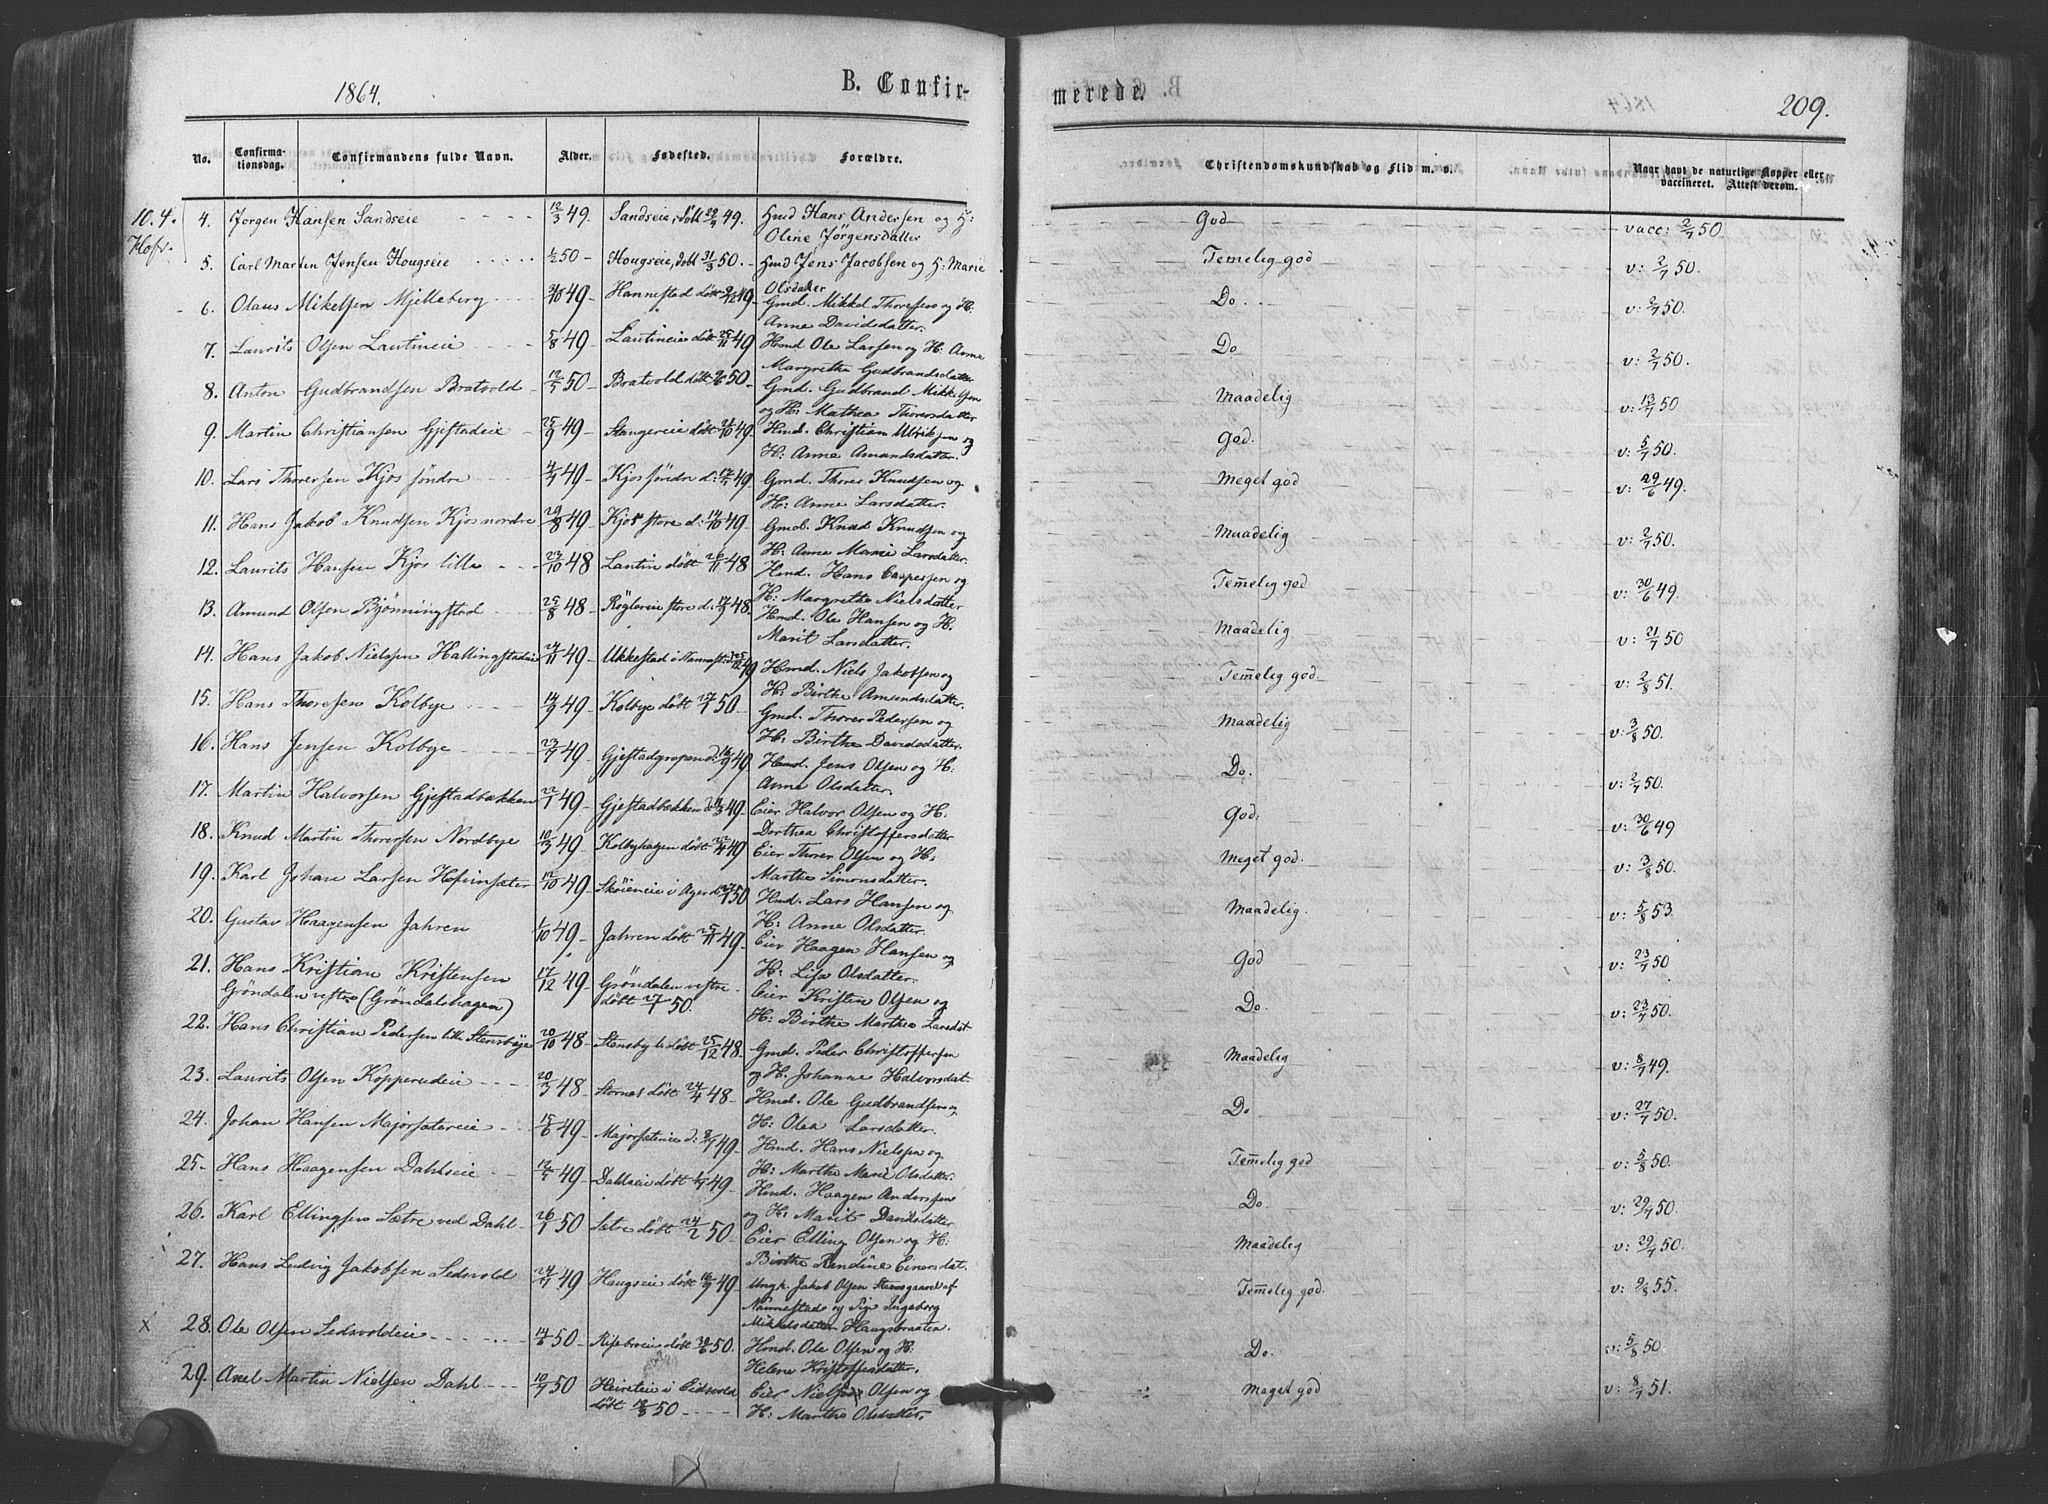 1864.
B. Confir-
merede.
209.
No.
Confirma-
tionsdag.
Confirmandens fulde Navn.
Alder.
Fødested.
Forældre.
Christendomskundskab og Flid m. v.
Naar havt de naturlige Kopper eller
vaccineret. Attest derom.
10.4.
4. Jørgen Hansen Sandseie 12/3 49. Sandseie, døbt 29/4 49. Hmd Hans Andersen og H: God vacc: 2/7 50.
Oline Jørgensdatter
5. Carl Martin Jensen Hougseie 1/2 50 Hougseie, døbt 31/3 50. Hmd Jens Jacobsen og H: Marie Temelig god v: 2/7 50.
Olsdatter
6. Olaus Mikelsen Mjelleberg 49 Hannestad døbt 49 Gmd. Mikkel Thoresen og H: Do v: 2/7 50.
Anne Davidsdatter.
7. Laurits Olsen Lautineie 5/8 49 Lautineie døbt 25/11 49 Hmd Ole Larsen og H: Anne Do v: 2/7 50.
Margrethe Gudbrandsdatter
8. Anton Gudbrandsen Bratvold 50 Bratvold døbt 50 Gmd. Gudbrand Mikkelsen Maadelig v: 13/7 50
og H: Mathea Thoresdatter
9. Martin Christiansen Gjestadeie 25/9 49 Stangereie døbt 49 Hmd. Christian Ulriksen og God. v: 5/7 50.
H: Anne Amundsdatter.
10. Lars Thoresen Kjos søndre 49 Kjos søndre d: 49 Gmd. Thorer Knudsen og Meget god v: 29/6 49.
H: Anne Larsdatter.
11. Hans Jakob Knudsen Kjos nordre 29/8 49 Kjos store d: 14/10 49 Gmd. Knud Knudsen og Maadelig v: 2/7 50.
H: Anne Marie Larsdatter
12. Laurits Hansen Kjos lille 23/10 48 Lautin døbt 26/11 48 Hmd. Hans Caspersen og Temelig god v: 30/6 49.
H: Margrethe Nielsdatter
13. Amund Olsen Bjønningstad 25/8 48 Røglereie store d: 17/9 48. Hmd. Ole Hansen og H: Maadelig v: 21/7 50
Marit Larsdatter.
14. Hans Jakob Nielsen Hallingstadeie 24/11 49 Ukkestad i Nannest. 49 Hmd. Niels Jakobsen og Temelig god. v: 2/8 51.
H: Birthe Amundsdatter.
15. Hans Thoresen Kolbye 14/9 49 Kolbye døbt 27/1 50 Gmd. Thorer Pedersen og Maadelig v: 3/8 50.
H: Birthe Davidsdatter.
16. Hans Jensen Kolbye 23/7 49 Gjestadgropen d: 16/9 49 Hmd. Jens Olsen og H: Do. v: 2/7 50.
Anne Olsdatter.
17. Martin Halvorsen Gjestadbækken 22/1 49 Gjestadbækken d: 11/3 49 Eier Halvor Olsen og H: God. v: 30/6 49
Dorthea Christoffersdatter
18. Knud Martin Thoresen Nordbye 10/3 49 Kolbyhagen døbt 22/4 49 Eier Thorer Olsen og H: Meget god. v: 3/8 50.
Marthe Simonsdatter.
19. Karl Johan Larsen 12/10 49 Skøieneie i Ager 50 Hmd. Lars Hansen og Maadelig. v: 5/8 53.
H: Anne Olsdatter.
20. Gustav Haagensen Jahren 1/10 49 Jahren døbt 25/11 49 Eier Haagen Hansen og God v: 23/7 50
H: Lisa Olsdatter.
21. Hans Kristian Kristensen 17/12 49 Grøndalen vestre Eier Kristen Olsen og Do. v: 23/7 50.
Grøndalen vestre (Grøndalshagen) døbt 27/1 50. H: Birthe Marthea Larsdat
22. Hans Christian Pedersen lille Stensbye 20/10 48 Stensby l: døbt 25/12 48. Gmd. Peder Christoffersen Maadelig v: 8/7 49.
og H. Johanne Halvorsdat.
23. Laurits Olsen Kopperudeie 20/3 48 Stornes døbt 24/4 48 Hmd. Ole Gudbrandsen og Do v: 27/7 50.
H: Olea Larsdatter.
24. Johan Hansen Majorsætereie 15/6 49 Majorsætereie d: 49 Hmd. Hans Nielsen og Temelig god v: 5/8 50.
H: Marthe Marie Olsdatter.
25. Hans Haagensen Dahlseie 49 Dahlseie døbt 49 Hmd. Haagen Anderssen Do. v: 50.
og H: Marit Davidsdatter
26. Karl Ellingsen Sætre ved Dahl 26/1 50 Sætre døbt 24/2 50 Eier Elling Olsen og H: Maadelig v: 29/7 50.
Birthe Randine Einersdat.
27. Hans Ludvig Jakobsen Ledsvold 24/7 49 Haugseie døbt 16/9 49 Ungk. Jakob Olsen Steensgaard af Temelig god. v: 9/8 55.
Nannestad og Pige Ingeborg
Mikkelsdatter Haugsbraaten.
x 28. Ole Olsen Ledsvoldeie 14/6 50 Risebroeie døbt 30/6 50. Hmd. Ole Olsen og H: Do. v: 5/8 50.
Helene Kristoffersdatter.
29. Axel Martin Nielsen Dahl 10/7 50 Heireteie i Eidsvold Eier Niels Olsen og Meget god v: 8/7 51.
døbt 50 H: Marthe Olsdatter.